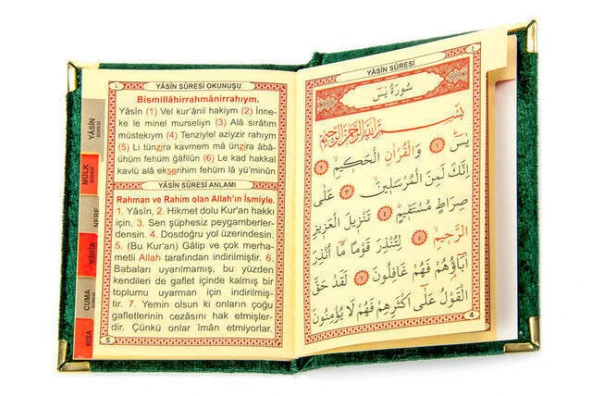 YÂSÎN SÛRESİ OKUNUŞU
Bismillâhirrahmânirrahıym.
Yâsîn (1) Vel kur'ânil hakiym (2) İnne-
ke le minel murseliyn (3) Alâ sırâtım
müstekıym (4) Tenziylel aziyzir rahıym
(5) Li tünzira kavmem mâ ünzira âbâ-
ühüm fehüm ğâfilûn (6) Le kad hakkal
kavlü alâ ekserihim fehüm lâ yü'minûn
YÂSÎN SÛRESİ ANLAMI
Rahman ve Rahim olan Allah'ın İsmiyle.
1. Yâsîn, 2. Hikmet dolu Kur'an hakkı
için, 3. Sen şüphesiz peygamberler-
densin. 4. Dosdoğru yol üzerindesin.
5. (Bu Kur'an) Gâlip ve çok merha-
metli Allah tarafından indirilmiştir. 6.
Babaları uyarılmamış, bu yüzden
kendileri de gaflet içinde kalmış bir
toplumu uyarman için indirilmiş-
tir. 7. Yemin olsun ki onların çoğu
gafletlerinin cezasını hak etmişler-
dir. Çünkü onlar îmân etmiyorlar.
5
YÂSÎN
MÜLK
NEBE
VÂKIA
CUMA
KISA
YÂSÎN SÛRESİ
سُورَةُ يٰسٓ
بِسْمِ اللّٰهِ الرَّحْمٰنِ الرَّحِيمِ
يٰسٓ ﴿١﴾ وَالْقُرْاٰنِ الْحَكِيمِ ﴿٢﴾
اِنَّكَ لَمِنَ الْمُرْسَلِينَ ﴿٣﴾ عَلٰى
صِرَاطٍ مُسْتَقِيمٍ ﴿٤﴾ تَنْزِيلَ الْعَزِيزِ
الرَّحِيمِ ﴿٥﴾ لِتُنْذِرَ قَوْمًا مَٓا اُنْذِرَ
اٰبَٓاؤُ۬هُمْ فَهُمْ غَافِلُونَ ﴿٦﴾ لَقَدْ حَقَّ
الْقَوْلُ عَلٰٓى اَكْثَرِهِمْ فَهُمْ لَا يُؤْمِنُونَ
4